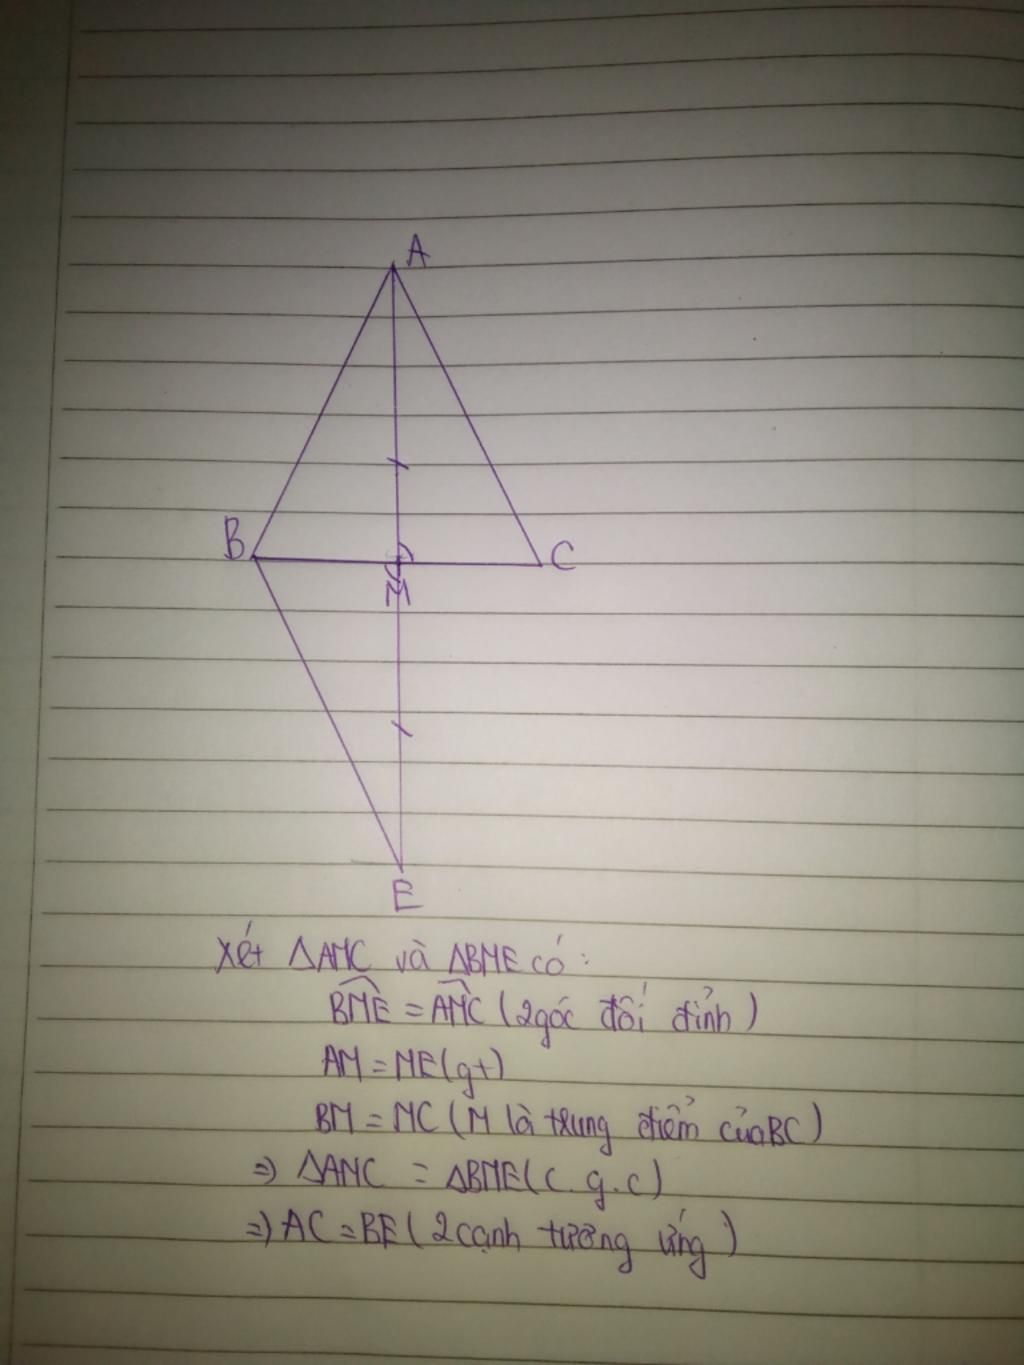 A
B
C
M
E
Xét ΔAMC và ΔBME có:
BM̂E = AM̂C (2 góc đối đỉnh)
AM = ME (gt)
BM = MC (M là trung điểm của BC)
=> ΔAMC = ΔBME (c.g.c)
=> AC = BE (2 cạnh tương ứng)